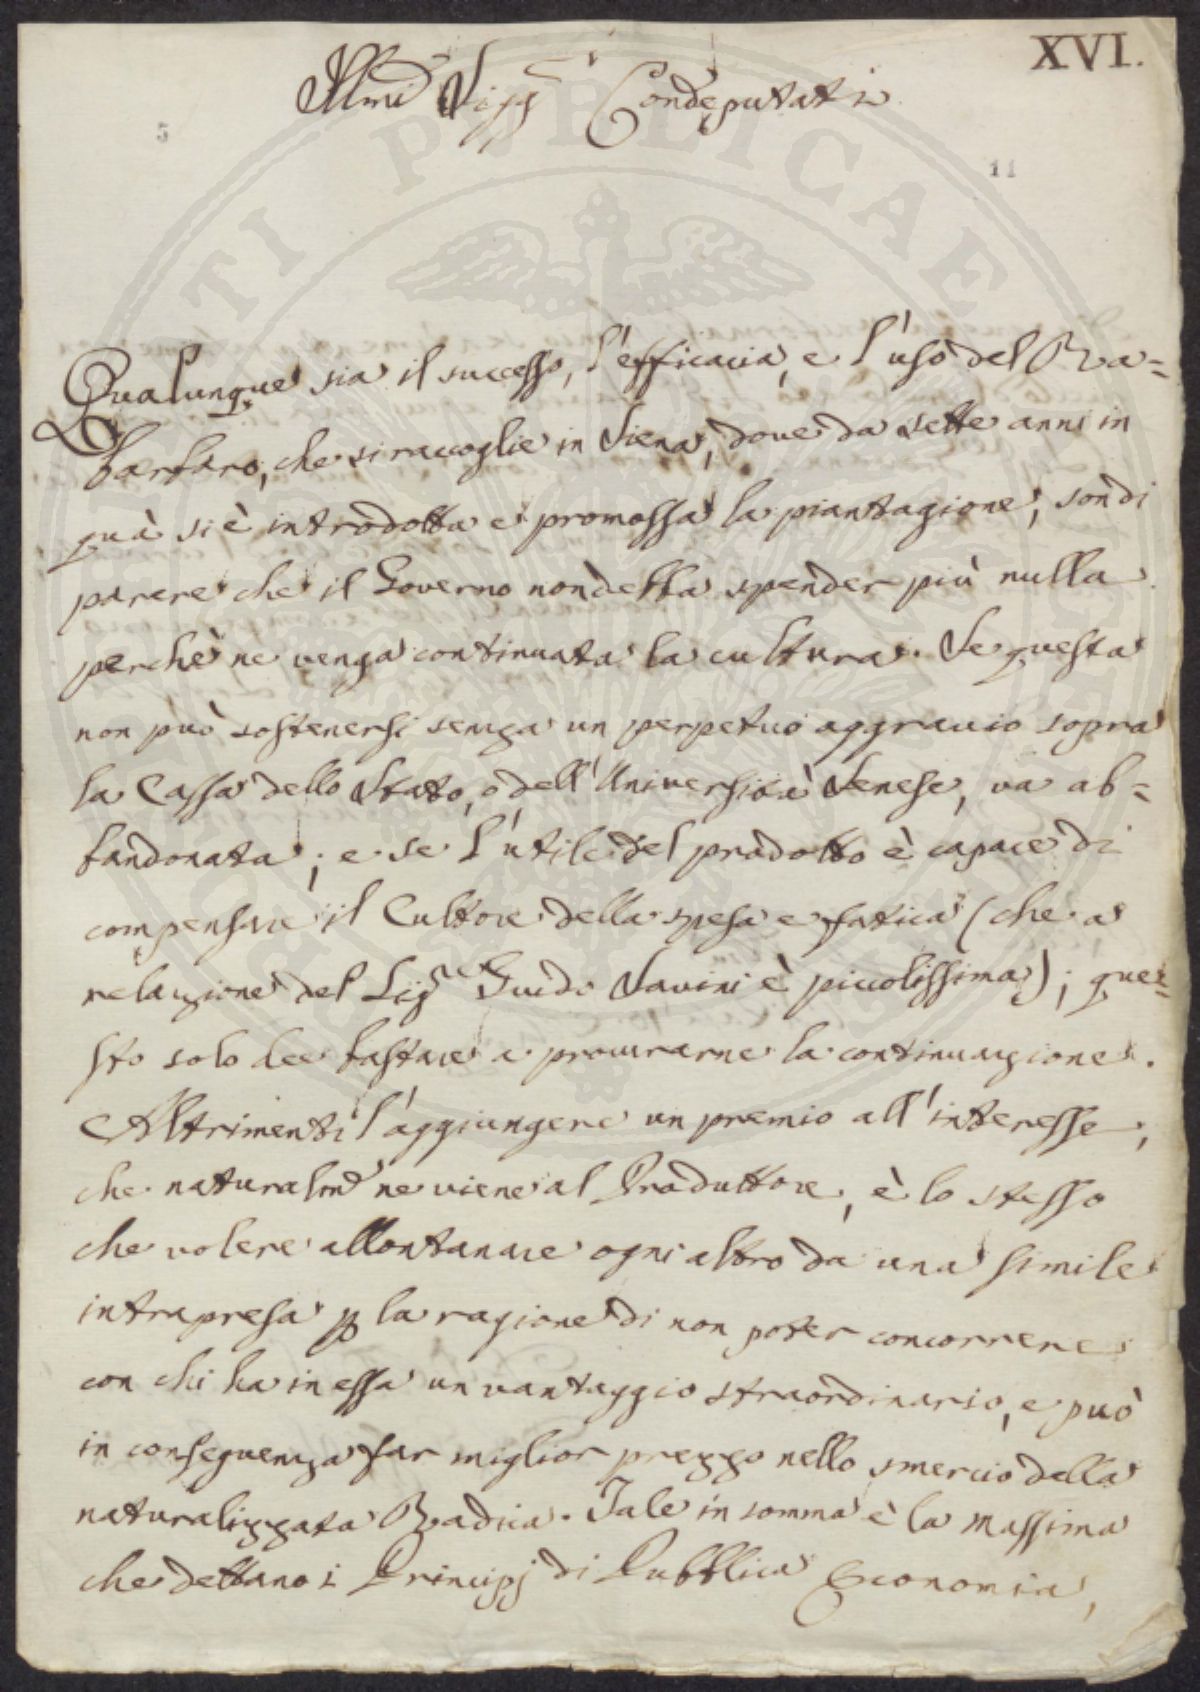 XVI.
Illmi Sigg.ri Condeputati
5
11
Qualunque sia il successo, l'efficacia, e l'uso del Ra=
barbaro, che si raccoglie in Siena, dove da sette anni in
quà si è introdotta e promossa la piantagione, son di
parere che il Governo non debba spender più nulla
perchè ne venga continuata la cultura. Se questa
non può sostenersi senza un perpetuo aggravio sopra
la Cassa dello Stato, o dell'Università Senese, va ab=
bandonata; e se l'utile del prodotto è capace di
compensare il Cultore della spesa e fatica (che a
relazione del Sig.re Guido Savini è piccolissima); que=
sto solo dee bastare a procurarne la continuazione.
Altrimenti l'aggiungere un premio all'interesse,
che naturalmte ne viene al Produttore, è lo stesso
che volere allontanare ogni altro da una simile
intrapresa p la ragione di non poter concorrere
con chi ha in essa un vantaggio straordinario, e può
in conseguenza far miglior prezzo nello smercio della
naturalizzata Radica. Tale in somma è la massima
che dettano i Principj di Pubblica Economia,